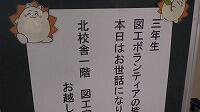 三年生
図工ボランティアの皆
本日はお世話になり
北校舎一階 図工
お越し